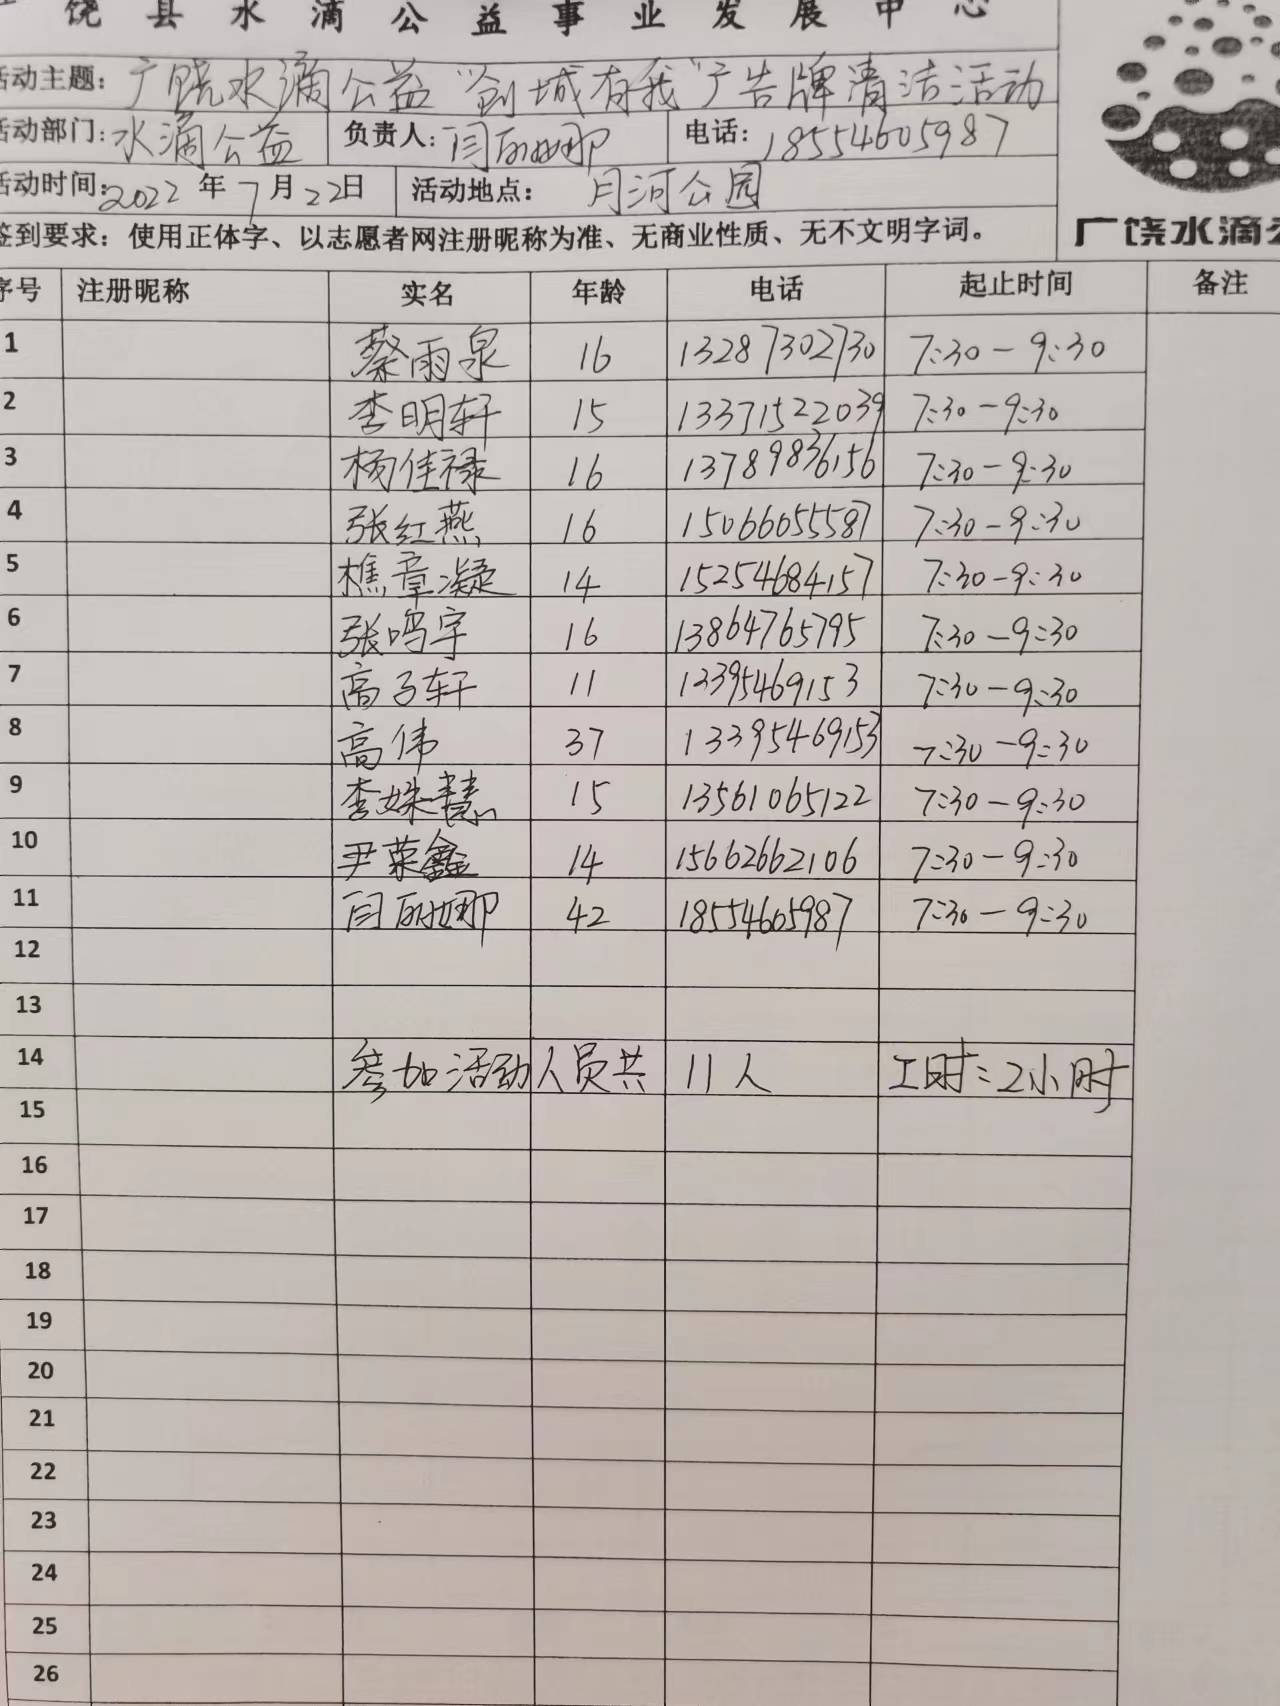 饶县水滴公益事业发展中心
活动主题：广饶水滴公益“创城有我”广告牌清洁活动
活动部门：水滴公益 负责人：闫丽娜 电话：18554605987
活动时间：2022年7月22日 活动地点：月河公园
签到要求：使用正体字、以志愿者网注册昵称为准、无商业性质、无不文明字词。
广饶水滴公
序号 注册昵称 实名 年龄 电话 起止时间 备注
1 蔡雨泉 16 13287302730 7:30-9:30
2 李明轩 15 13371522039 7:30-9:30
3 杨佳禄 16 13789836156 7:30-9:30
4 张红燕 16 15066055587 7:30-9:30
5 樵章凝 14 15254684157 7:30-9:30
6 张鸣宇 16 13864765795 7:30-9:30
7 高子轩 11 13395469153 7:30-9:30
8 高伟 37 13395469153 7:30-9:30
9 李姝慧 15 13561065122 7:30-9:30
10 尹荣鑫 14 15662662106 7:30-9:30
11 闫丽娜 42 18554605987 7:30-9:30
12
13
14 参加活动人员共 11人 工时：2小时
15
16
17
18
19
20
21
22
23
24
25
26